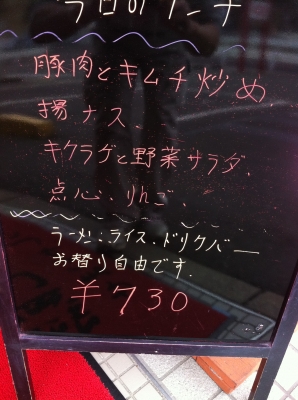 今日のランチ
豚肉とキムチ炒め
揚ナス、
キクラゲと野菜サラダ、
点心、りんご、
ラーメン、ライス、ドリクバー
お替り自由です。
￥730